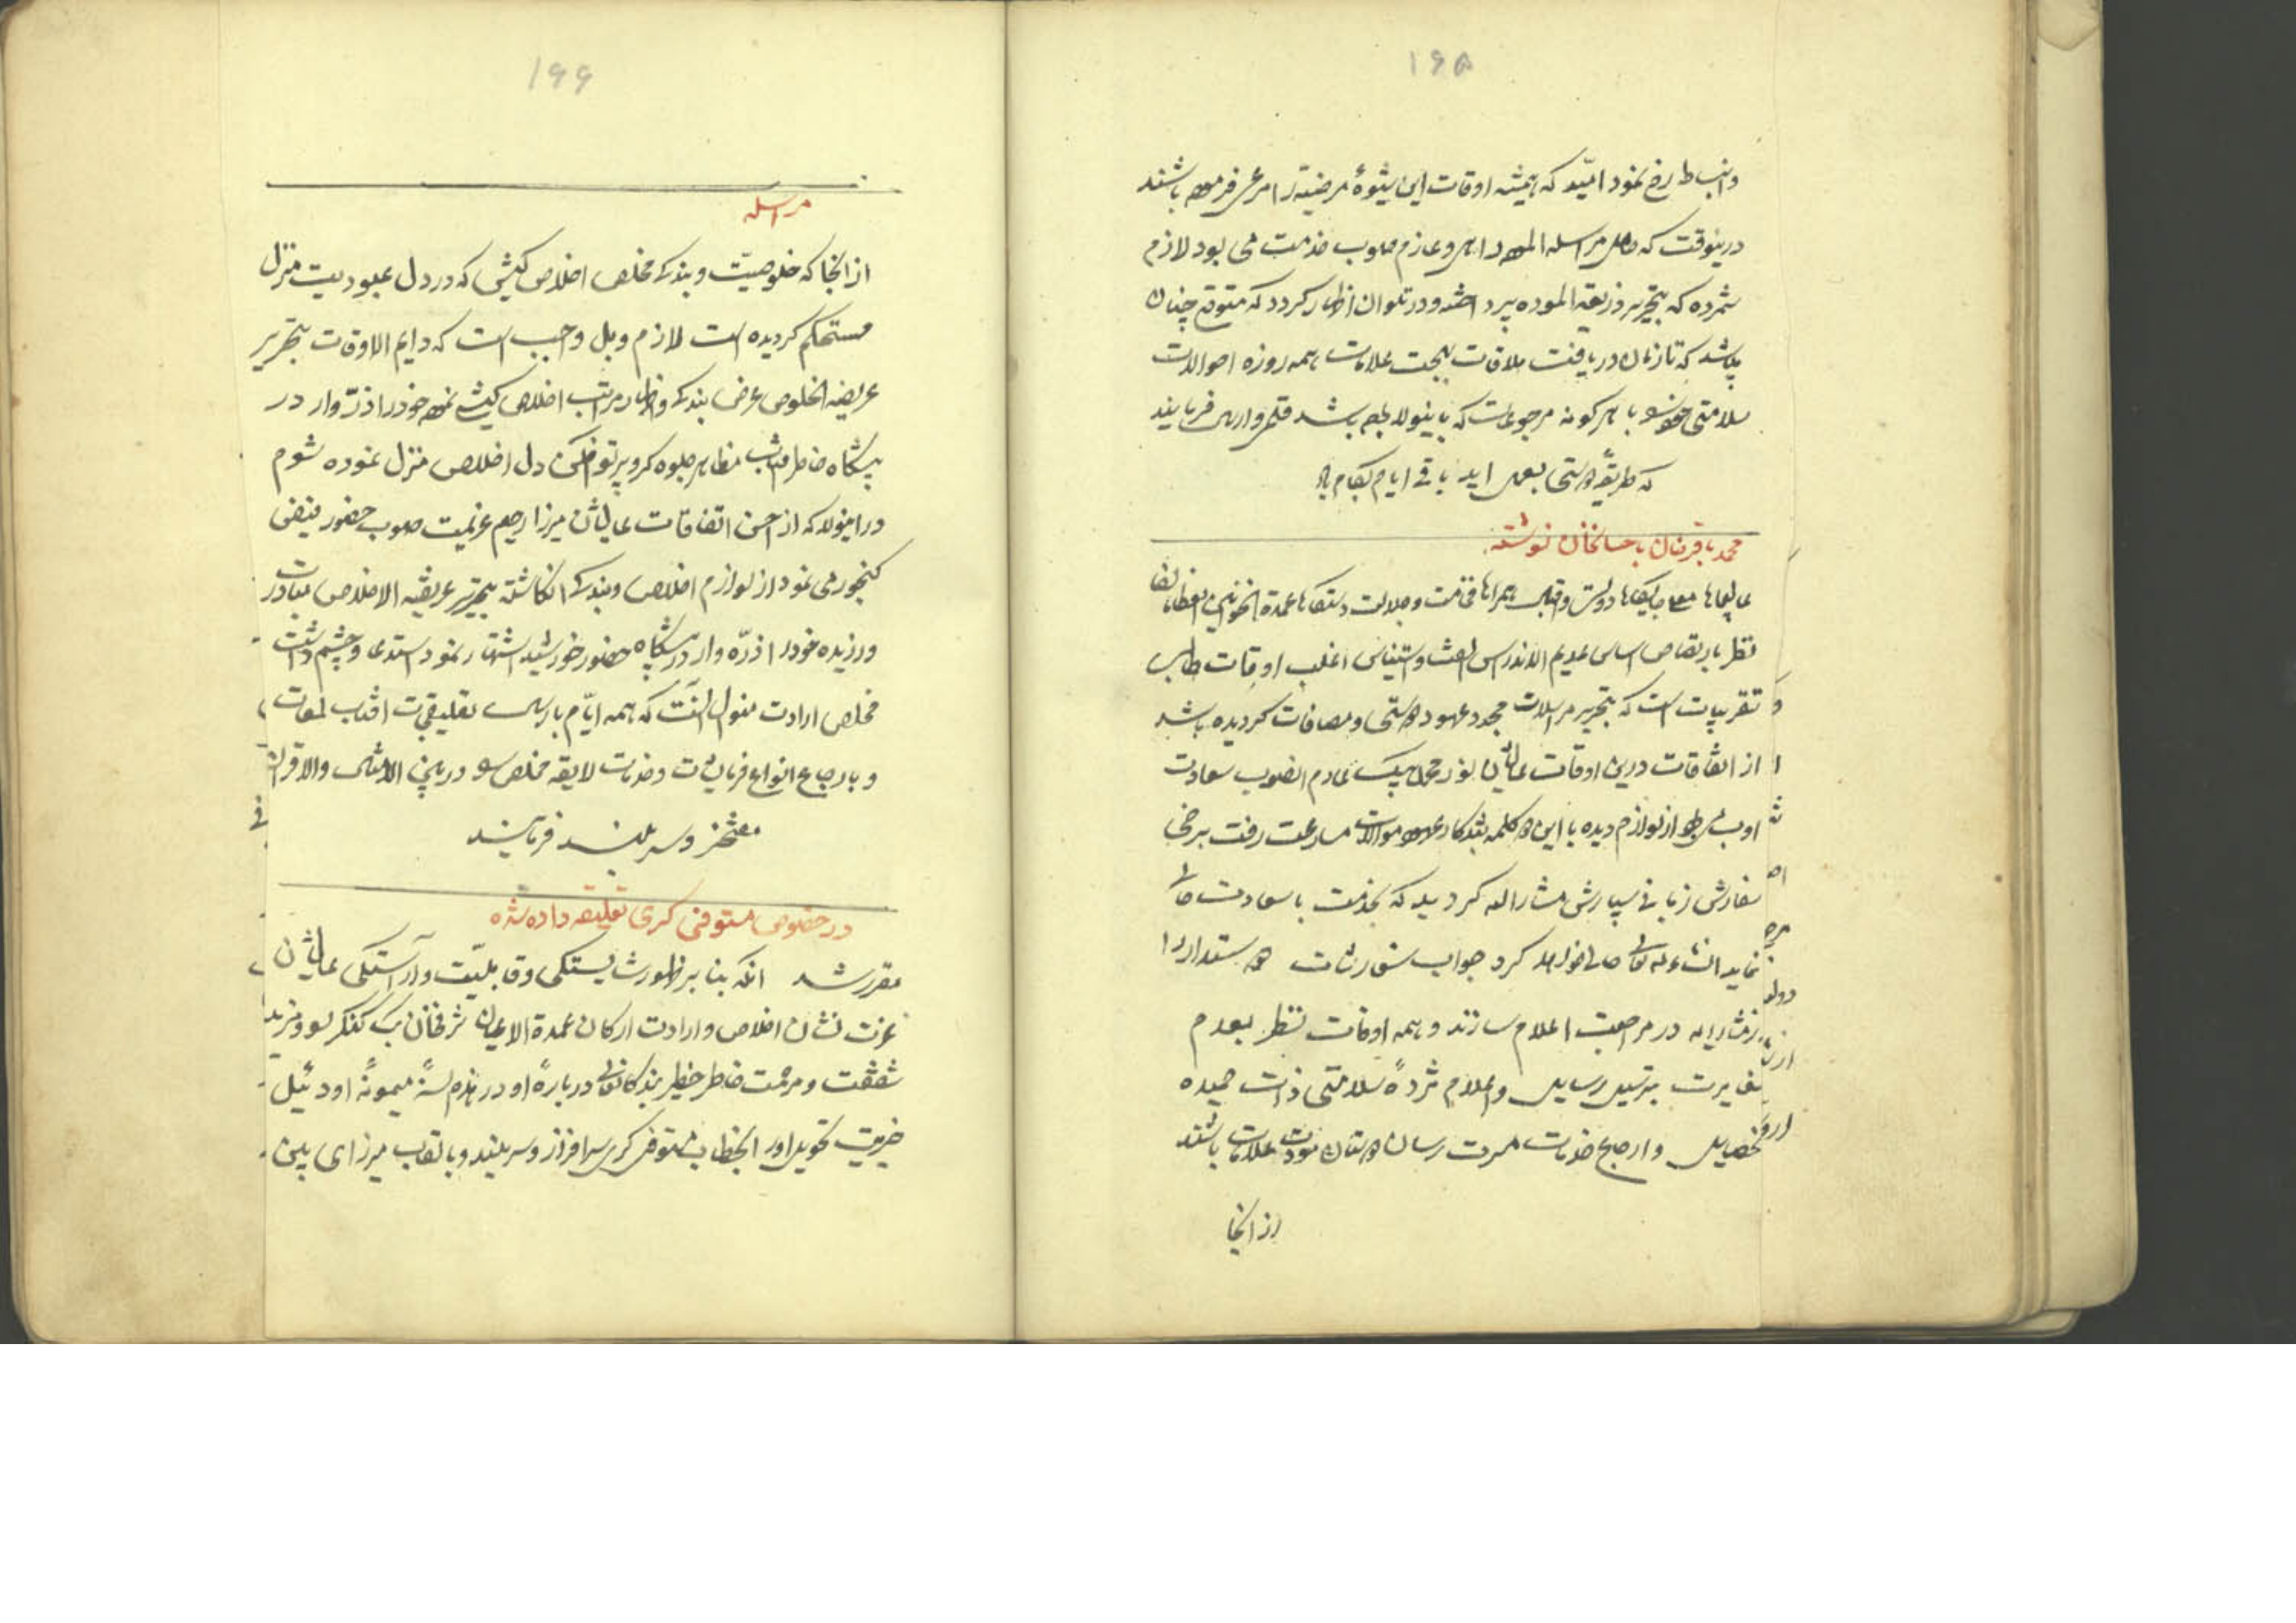 ۱۶۵
وانبساط رخ نمود امید که همیشه اوقات این شیوهٔ مرضیه را مرعی فرموده باشند
درینوقت که حامل مراسله الموده راهی و عازم صوب خدمت می بود لازم
شمرده که بتحریر ذریعة الموده پرداخته و در تلو آن اظهار کردد که متوقع چنان
میباشد که تا زمان دریافت ملاقات بهجت علامات همه روزه احوالات
سلامتی خود را با هر کونه مرجوعات که باینولا بوده باشد قلمی و ارسال فرمایند
که طریقهٔ دوستی بعمل اید باقی ایام بکام باد
محمد باقرخان باحسانخان نوشته
عالیجاها معلی جایکاها دولت و اقبال همراها فخامت و جلالت دستکاها عمدة الخوانین العظاما
نظر باقتضای اساس عدیم الاندراس الفت و استیناس اغلب اوقات طالب
تقریبات است که بتحریر مراسلات مجدد عهود دوستی و مصافات کردیده باشد
از اتفاقات درین اوقات عالیشان نور محمد بیک عازم انصوب سعادت
اوب می بود از لوازم دیده با این دو کلمه بتذکار عهود موالات مسارعت رفت برخی
سفارش زبانی سپارش مشار الیه کردید که بخدمت با سعادت حالی
نماید انشاء الله تعالی حالی خواهد کرد جواب سفارشات دوستدار را
مشار الیه در مراجعت اعلام سازند و همه اوقات نظر بعدم
مغایرت بترسیل رسایل و اعلام مژدهٔ سلامتی ذات حمیده
خصایل و ارجاع خدمات مسرت رسان دوستان مودت علامات باشند
از انجا
۱۶۶
مراسله
از انجا که خلوصیت و بندکی مخلص اخلاص کیش که در دل عبودیت منزل
مستحکم کردیده است لازم و بل واجب است که دایم الاوقات بتحریر
عریضه الخلوص عرض بندکی و اظهار مراتب اخلاص کیشی نموده خود را ذره وار در
پیشکاه خاطر افتاب مظاهر جلوه کر و پرتو افکن دل اخلاص منزل نموده شوم
در اینولا که از حسن اتفاقات عالیشان میرزا رحیم عزیمت صوب حضور فیض
کنجور می نمود از لوازم اخلاص و بندکی انکاشته بتحریر عریضة الاخلاص مبادرت
ورزیده خود را ذره وار در پیشکاه حضور خورشید اشتهار نمود استدعا و چشم داشت
مخلص ارادت منوال انست که همه ایام بارسال تعلیقجات افتاب لمعات
و بارجاع انواع فرمایشات و خدمات لایقه مخلص را در بین الامثال والاقران
مفتخر و سربلند فرمایند
در خصوص مستوفی کری تعلیقه داده شده
مقرر شد انکه بنا بر ظهور شایستکی و قابلیت و آراستکی عالیشان
عزت نشان اخلاص و ارادت ارکان عمدة الاعیان شرفخان بیک کنکرلو و مزید
شفقت و مرحمت خاطر خطیر بندکانعالی دربارهٔ او در هذه السنهٔ میمونهٔ اودئیل
خیریت تحویل او را بخطاب مستوفی کری سرافراز و سربلند و بالقاب میرزای بین